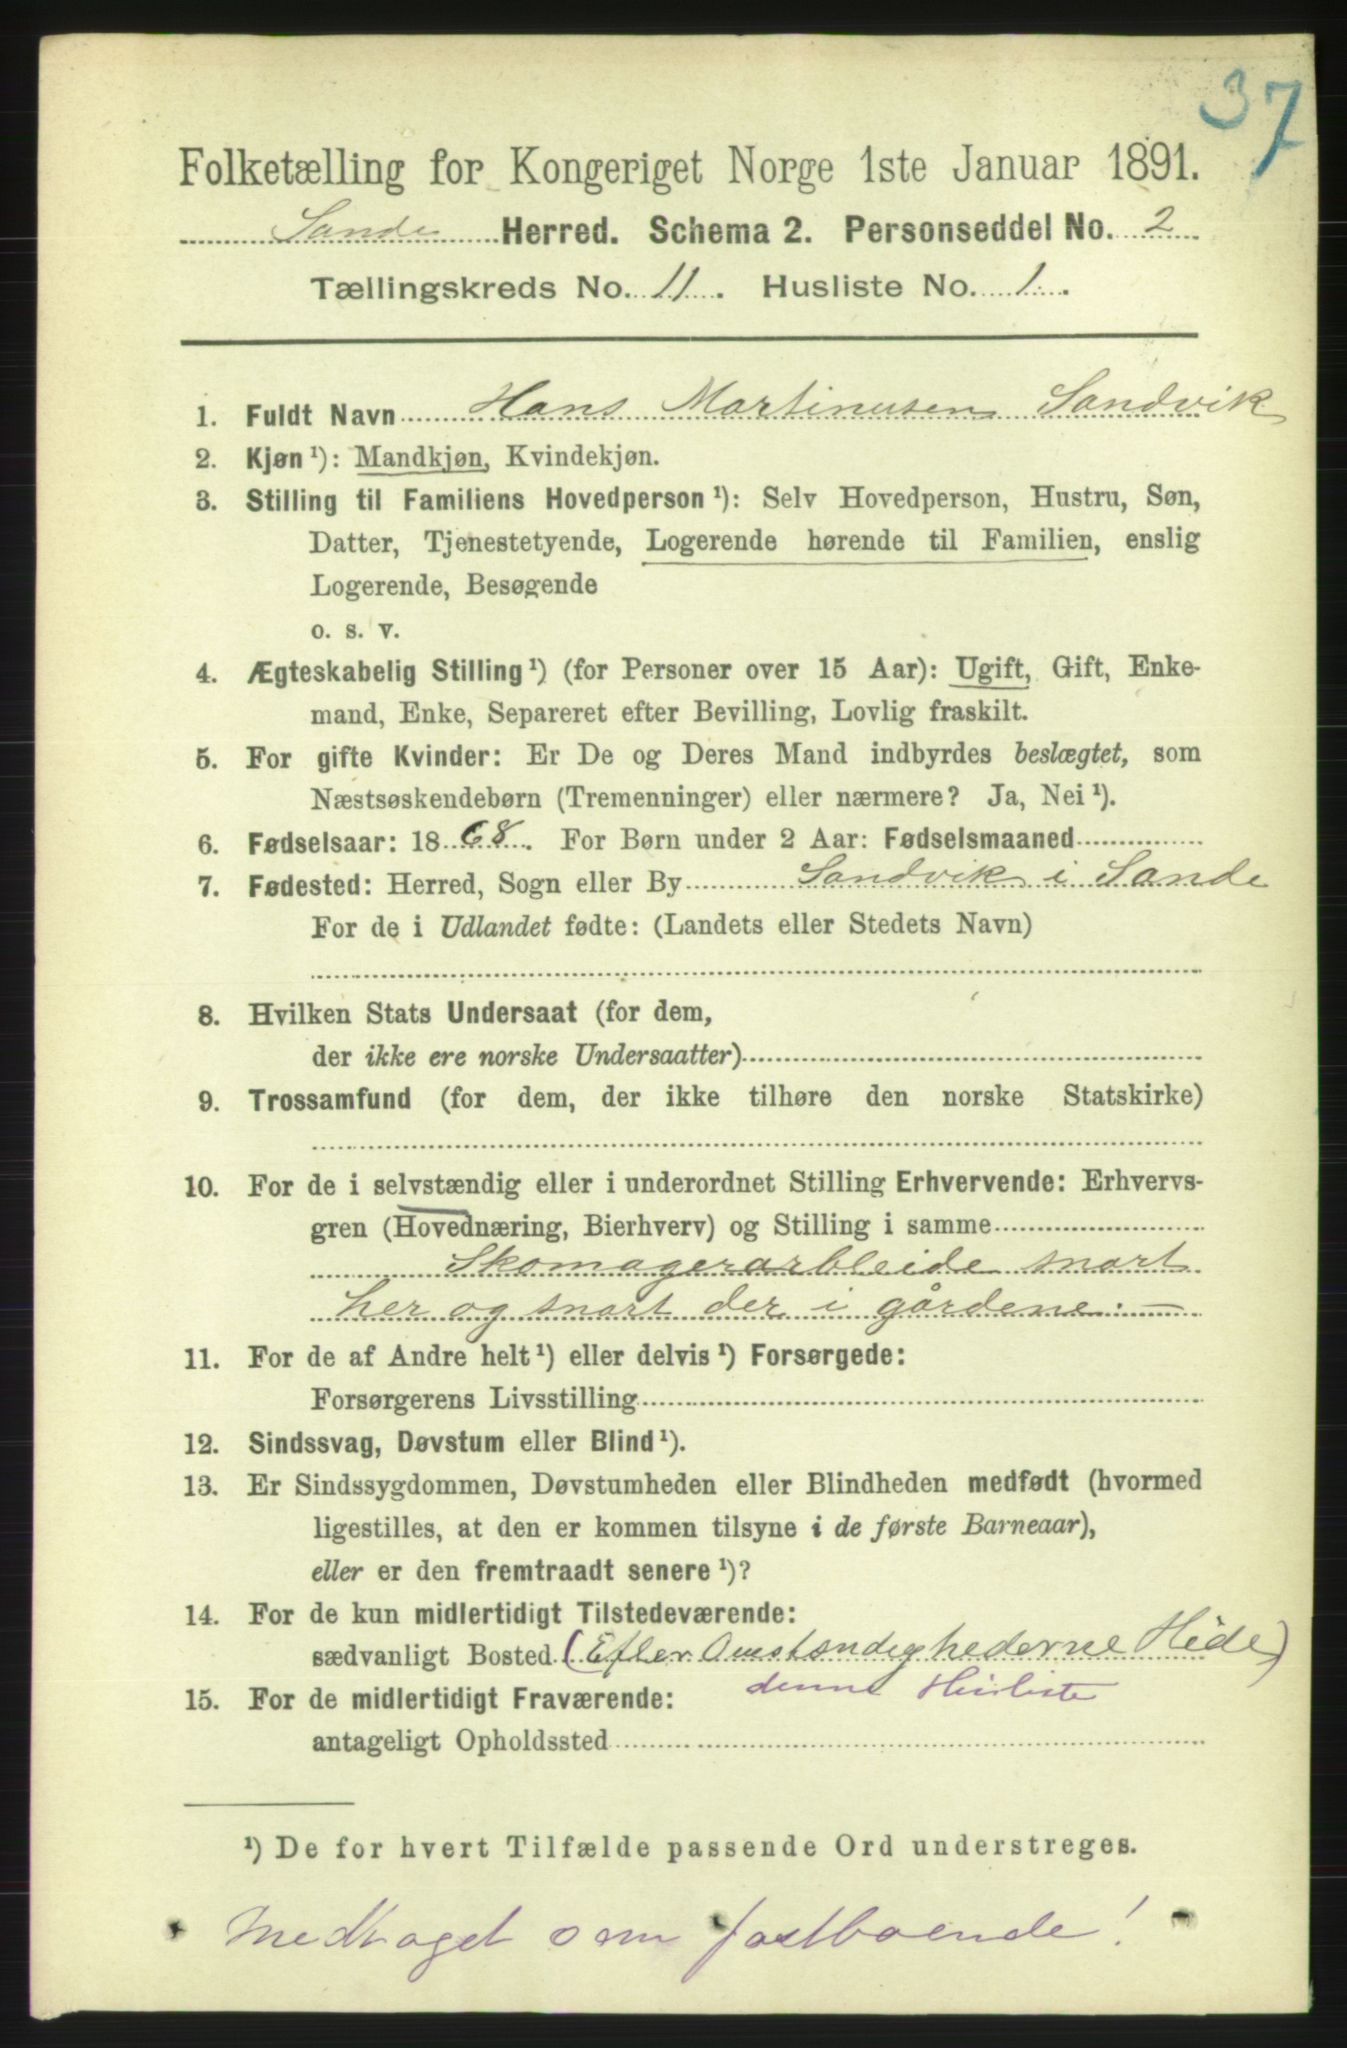 37
Folketælling for Kongeriget Norge 1ste Januar 1891.
Sande Herred. Schema 2. Personseddel No. 2
Tællingskreds No. 11. Husliste No. 1.
1. Fuldt Navn Hans Martinusen Sandvik
2. Kjøn ¹): Mandkjøn, Kvindekjøn.
3. Stilling til Familiens Hovedperson ¹): Selv Hovedperson, Hustru, Søn,
Datter, Tjenestetyende, Logerende hørende til Familien, enslig
Logerende, Besøgende
o. s. v.
4. Ægteskabelig Stilling ¹) (for Personer over 15 Aar): Ugift, Gift, Enke-
mand, Enke, Separeret efter Bevilling, Lovlig fraskilt.
5. For gifte Kvinder: Er De og Deres Mand indbyrdes beslægtet, som
Næstsøskendebørn (Tremenninger) eller nærmere? Ja, Nei ¹).
6. Fødselsaar: 1868. For Børn under 2 Aar: Fødselsmaaned
7. Fødested: Herred, Sogn eller By Sandvik i Sande
For de i Udlandet fødte: (Landets eller Stedets Navn)
8. Hvilken Stats Undersaat (for dem,
der ikke ere norske Undersaatter)
9. Trossamfund (for dem, der ikke tilhøre den norske Statskirke)
10. For de i selvstændig eller i underordnet Stilling Erhvervende: Erhvervs-
gren (Hovednæring, Bierhverv) og Stilling i samme
Skomagerarbleide snart
her og snart der i gårdene. —
11. For de af Andre helt ¹) eller delvis ¹) Forsørgede:
Forsørgerens Livsstilling
12. Sindssvag, Døvstum eller Blind ¹).
13. Er Sindssygdommen, Døvstumheden eller Blindheden medfødt (hvormed
ligestilles, at den er kommen tilsyne i de første Barneaar),
eller er den fremtraadt senere ¹)?
14. For de kun midlertidigt Tilstedeværende:
sædvanligt Bosted (Efter Omstændighederne
denne Husliste
15. For de midlertidigt Fraværende:
antageligt Opholdssted
¹) De for hvert Tilfælde passende Ord understreges.
Medtaget som fastboende!